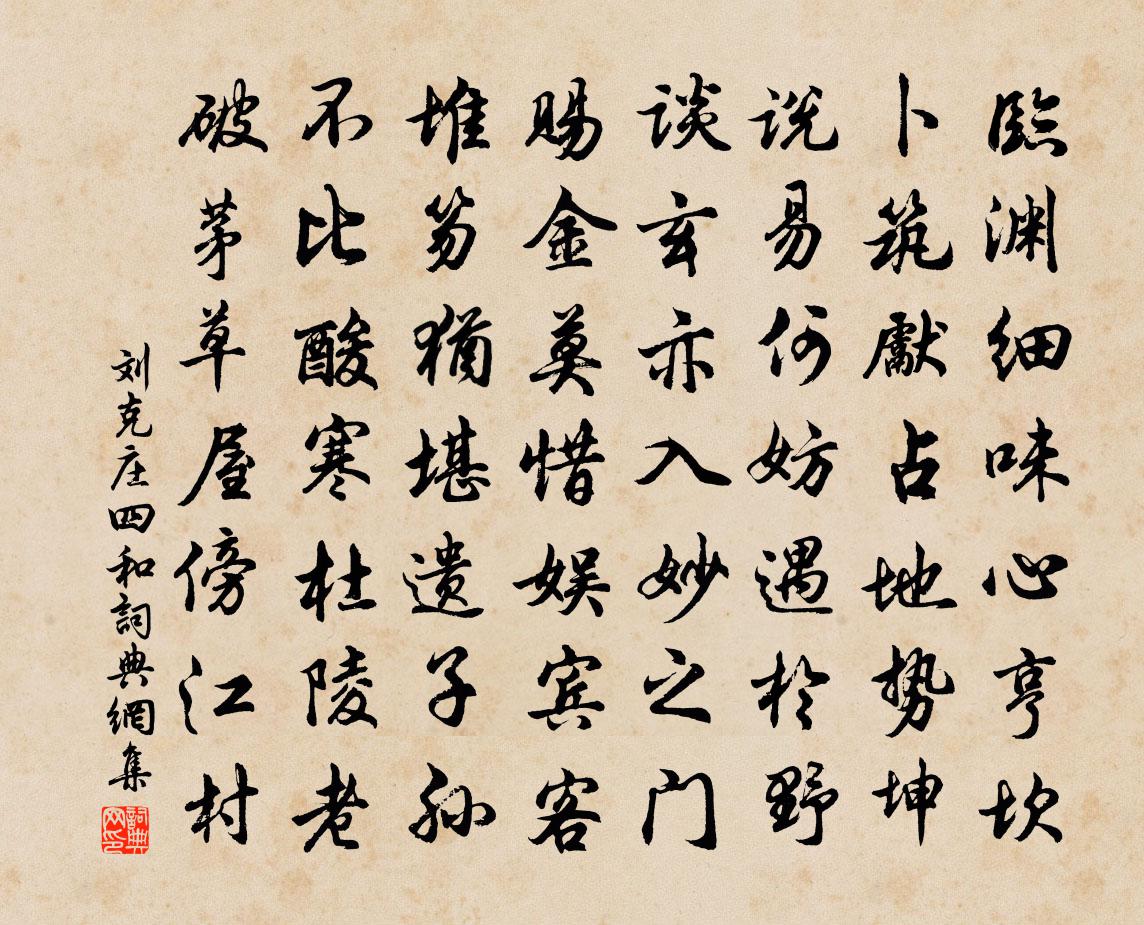 臨渊细味心亨坎
卜筑獻占地势坤
说易何妨遇於野
谈玄亦入妙之门
赐金莫惜娱宾客
堆笏猶堪遗子孙
不比酸寒杜陵老
破茅草屋傍江村
刘克庄四和詞典網集
詞典网印